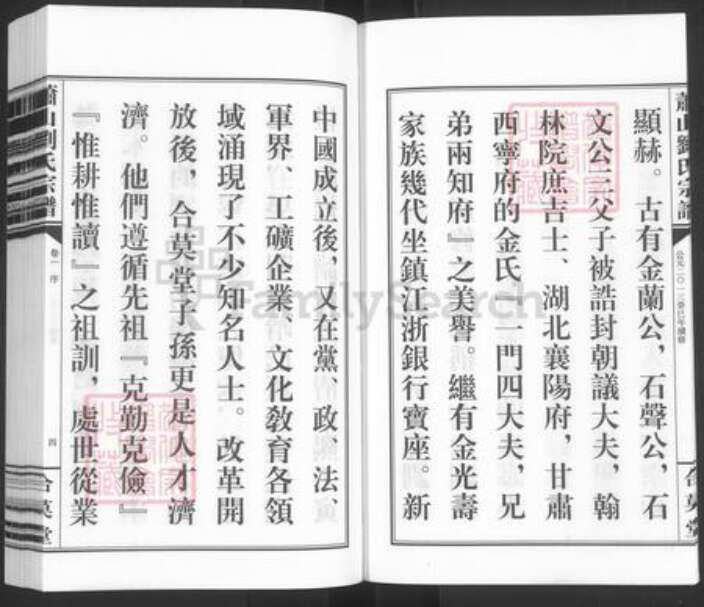 蕭山劉氏宗譜
公元二〇一三癸巳年續修
合莫堂
顯赫。古有金蘭公，石聲公，石
文公三父子被誥封朝議大夫，翰
林院庶吉士、湖北襄陽府，甘肅
西寧府的金氏『一門四大夫，兄
弟兩知府』之美譽。繼有金光壽
家族幾代坐鎮江浙銀行寶座。新
中國成立後，又在黨、政、法、
軍界、工礦企業、文化教育各領
域涌現了不少知名人士。改革開
放後，合莫堂子孫更是人才濟
濟。他們遵循先祖『克勤克儉』
『惟耕惟讀』之祖訓，處世從業
蕭山劉氏宗譜
卷一 序
四
合莫堂
FamilySearch